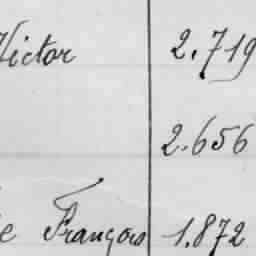 Victor 2.719
2.656
e François 1.872